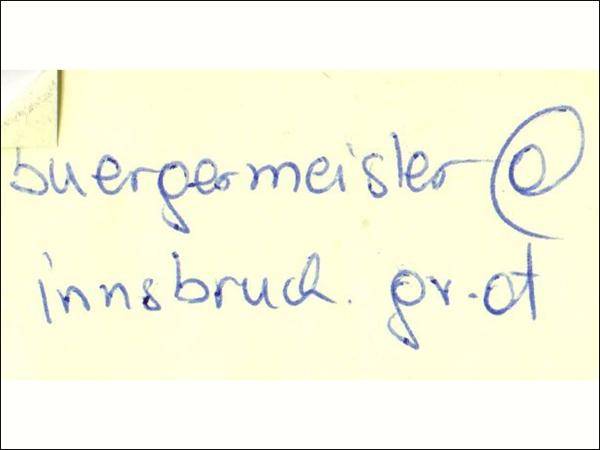 buergermeister@
innsbruck.gr.at